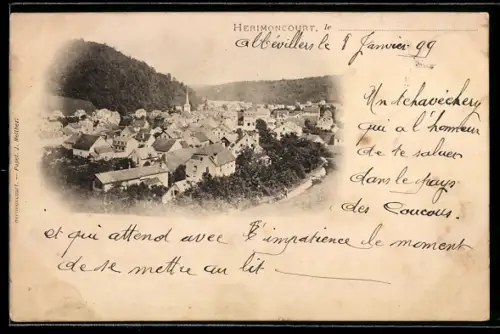 HERIMONCOURT, le
Abbévillers le 8 Janvier 99
Un tchavéchery
qui a l'honneur
de te saluer
dans le pays
des Coucous.
et qui attend avec l'impatience le moment
de se mettre au lit
HERIMONCOURT. — Papet. J. Pétrequin